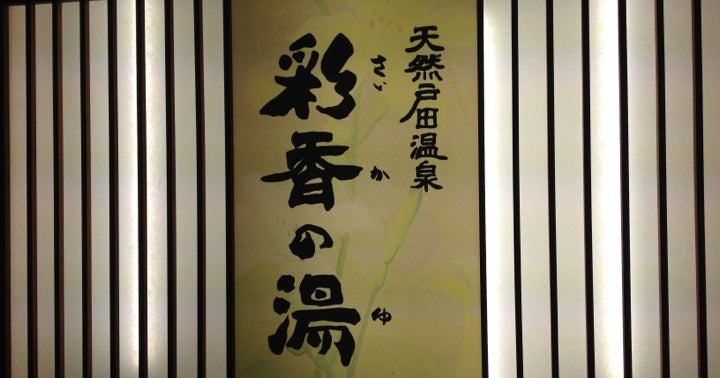 天然戸田温泉
彩香の湯
さいか ゆ